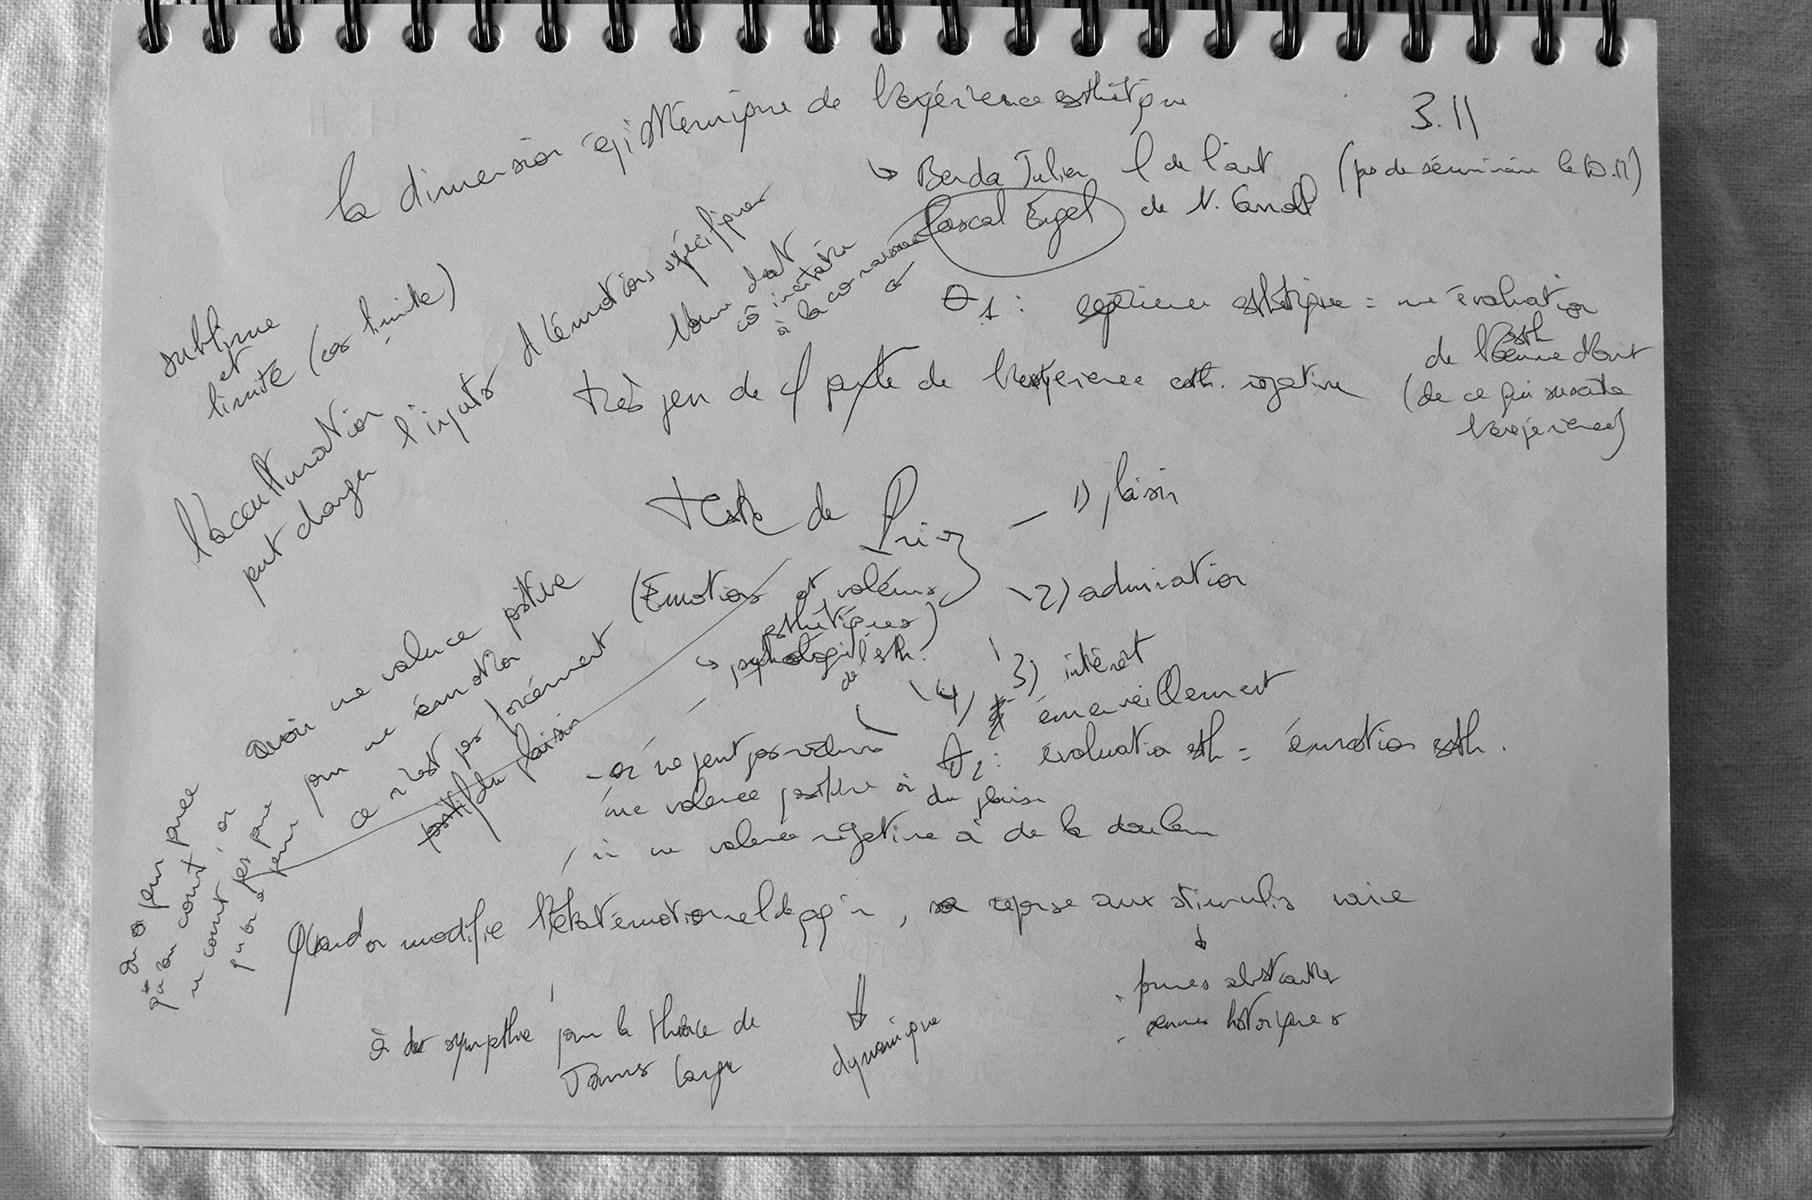 la dimension épistémique de l'expérience esthétique
3.11
↳ Benda Julien
de l'art
(pas de séminaire le 10.11)
Pascal Engel
de N. Carroll
θ1 : expérience esthétique = une évaluation
esth
de l'œuvre d'art
(de ce qui suscite
l'expérience)
très peu de
de l'expérience esth. négative
sublime
et
limité (cas limite)
l'acculturation
peut changer l'inputs d'émotions spécifiques
à la connaissance
texte de
(Émotions et valeurs
esthétiques)
↳ psychologie de l'esth.
1) plaisir
2) admiration
3) intérêt
4) émerveillement
θ2 : évaluation esth = émotion esth.
avoir une valence positive
pour une émotion
ce n'est pas forcément
positif du plaisir
- on ne peut pas réduire
une valence positive à du plaisir
ni une valence négative à de la douleur
on a peur parce
qu'on court, on
ne court pas parce
qu'on a peur
Quand on modifie l'état émotionnel de qq'n, sa réponse aux stimulis varie
↓
formes abstraites
œuvres historiques
⇓
dynamique
a de sympathie pour la théorie de
James Lange